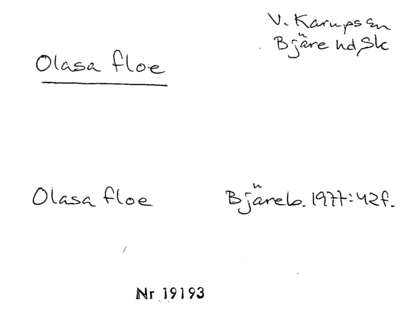 V. Karups sn
Bjäre hd, Sk
Olasa floe
Olasa floe Bjäreb. 1977:42f.
Nr 19193